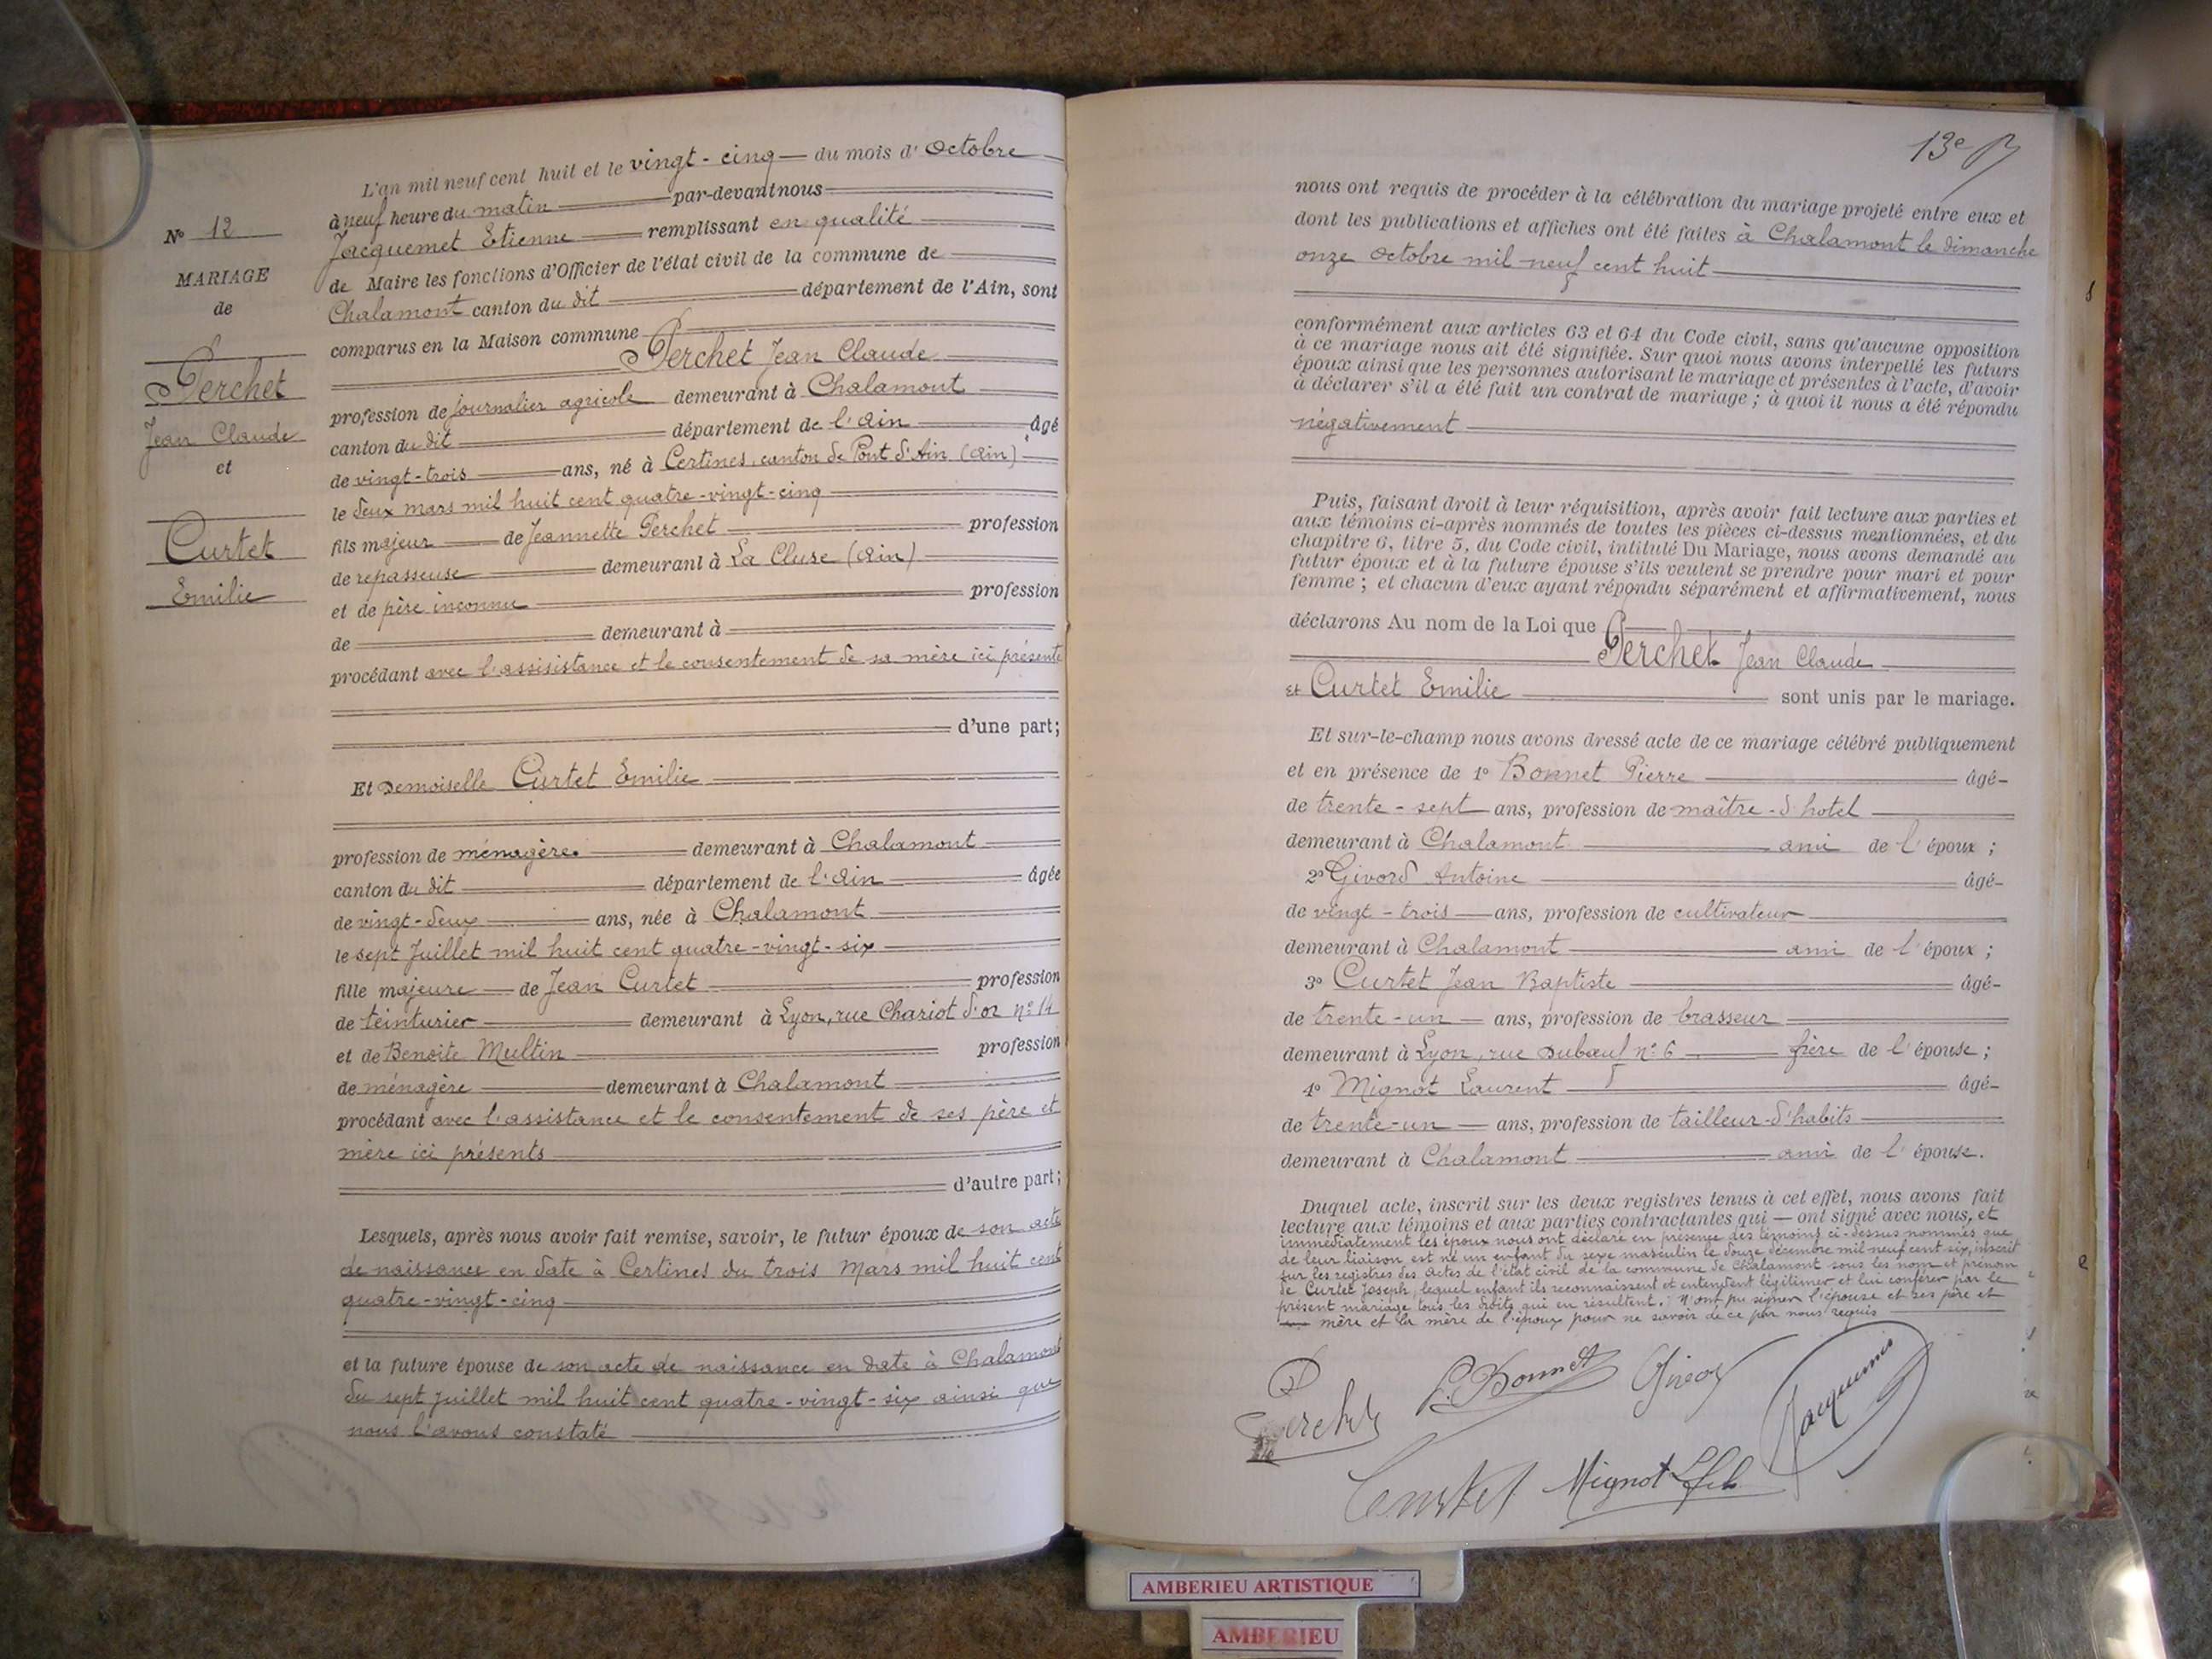 L'an mil neuf cent huit et le vingt-cinq du mois d'Octobre
à neuf heure du matin par-devant nous
Jacquemet Etienne remplissant en qualité
de Maire les fonctions d'Officier de l'état civil de la commune de
Chalamont canton du dit département de l'Ain, sont
comparus en la Maison commune
Perchet Jean Claude
profession de journalier agricole demeurant à Chalamont
canton du dit département de l'Ain âgé
de vingt-trois ans, né à Certines, canton de Pont d'Ain (Ain)
le deux mars mil huit cent quatre-vingt-cinq
fils majeur de Jeannette Perchet profession
de repasseuse demeurant à La Cluse (Ain)
et de père inconnu profession
de demeurant à
procédant avec l'assisistance et le consentement de sa mère ici présente
d'une part;
Et Demoiselle Curtet Emilie
profession de ménagère demeurant à Chalamont
canton du dit département de l'Ain âgée
de vingt-deux ans, née à Chalamont
le sept Juillet mil huit cent quatre-vingt-six
fille majeure de Jean Curtet profession
de teinturier demeurant à Lyon, rue Chariot d'or n° 14
et de Benoite Multin profession
de ménagère demeurant à Chalamont
procédant avec l'assistance et le consentement de ses père et
mère ici présents
d'autre part;
Lesquels, après nous avoir fait remise, savoir, le futur époux de son acte
de naissance en date à Certines du trois Mars mil huit cent
quatre-vingt-cinq
et la future épouse de son acte de naissance en date à Chalamont
du sept Juillet mil huit cent quatre-vingt-six ainsi que
nous l'avons constaté
N° 12
MARIAGE
de
Perchet
Jean Claude
et
Curtet
Emilie
13e
nous ont requis de procéder à la célébration du mariage projeté entre eux et
dont les publications et affiches ont été faites à Chalamont le dimanche
onze Octobre mil neuf cent huit
conformément aux articles 63 et 64 du Code civil, sans qu'aucune opposition
à ce mariage nous ait été signifiée. Sur quoi nous avons interpellé les futurs
époux ainsi que les personnes autorisant le mariage et présentes à l'acte, d'avoir
à déclarer s'il a été fait un contrat de mariage; à quoi il nous a été répondu
négativement
Puis, faisant droit à leur réquisition, après avoir fait lecture aux parties et
aux témoins ci-après nommés de toutes les pièces ci-dessus mentionnées, et du
chapitre 6, titre 5, du Code civil, intitulé Du Mariage, nous avons demandé au
futur époux et à la future épouse s'ils veulent se prendre pour mari et pour
femme; et chacun d'eux ayant répondu séparément et affirmativement, nous
déclarons Au nom de la Loi que
Perchet Jean Claude
et Curtet Emilie sont unis par le mariage.
Et sur-le-champ nous avons dressé acte de ce mariage célébré publiquement
et en présence de 1° Bonnet Pierre âgé-
de trente-sept ans, profession de maître-d'hotel
demeurant à Chalamont ami de l'époux;
2° Givord Antoine âgé-
de vingt-trois ans, profession de cultivateur
demeurant à Chalamont ami de l'époux;
3° Curtet Jean Baptiste âgé-
de trente-un ans, profession de brasseur
demeurant à Lyon, rue Dubœuf n° 6 frère de l'épouse;
4° Mignot Laurent âgé-
de trente-un ans, profession de tailleur-d'habits
demeurant à Chalamont ami de l'épouse.
Duquel acte, inscrit sur les deux registres tenus à cet effet, nous avons fait
lecture aux témoins et aux parties contractantes qui — ont signé avec nous, et
immédiatement les époux nous ont déclaré en présence des témoins ci-dessus nommés que
de leur liaison est né un enfant du sexe masculin le douze décembre mil neuf cent six, inscrit
sur les registres des actes de l'état civil de la commune de Chalamont sous les nom et prénom
de Curtet Joseph, lequel enfant ils reconnaissent et entendent légitimer et lui conférer par le
présent mariage tous les droits qui en résultent. N'ont pu signer l'épouse et ses père et
mère et la mère de l'époux pour ne savoir de ce par nous requis
Perchet P. Bonnet Givord Jacquemet
Curtet Mignot L fils
AMBERIEU ARTISTIQUE
AMBERIEU